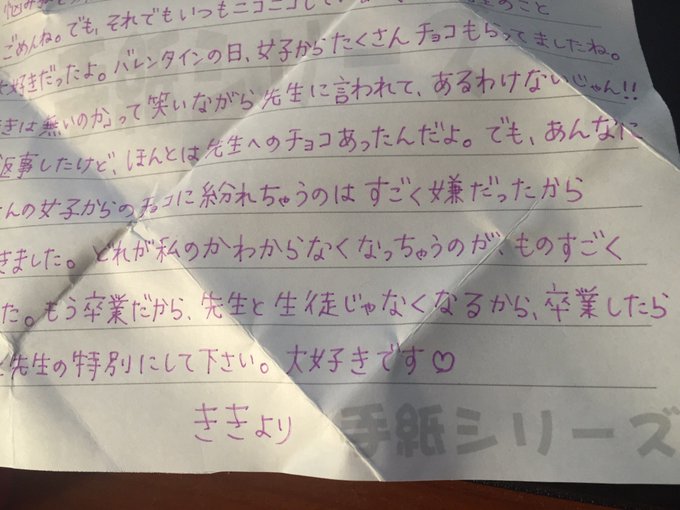 ごめんね。でも、それでもいつもニコニコして
大好きだったよ。バレンタインの日、女子からたくさんチョコもらってましたね。
きは無いのか」って笑いながら先生に言われて、あるわけないじゃん!!
返事したけど、ほんとは先生へのチョコあったんだよ。でも、あんなに
さんの女子からのチョコに紛れちゃうのはすごく嫌だったから
きました。どれが私のかわからなくなっちゃうのが、ものすごく
た。もう卒業だから、先生と生徒じゃなくなるから、卒業したら
先生の特別にして下さい。大好きです♡
ききより
手紙シリーズ